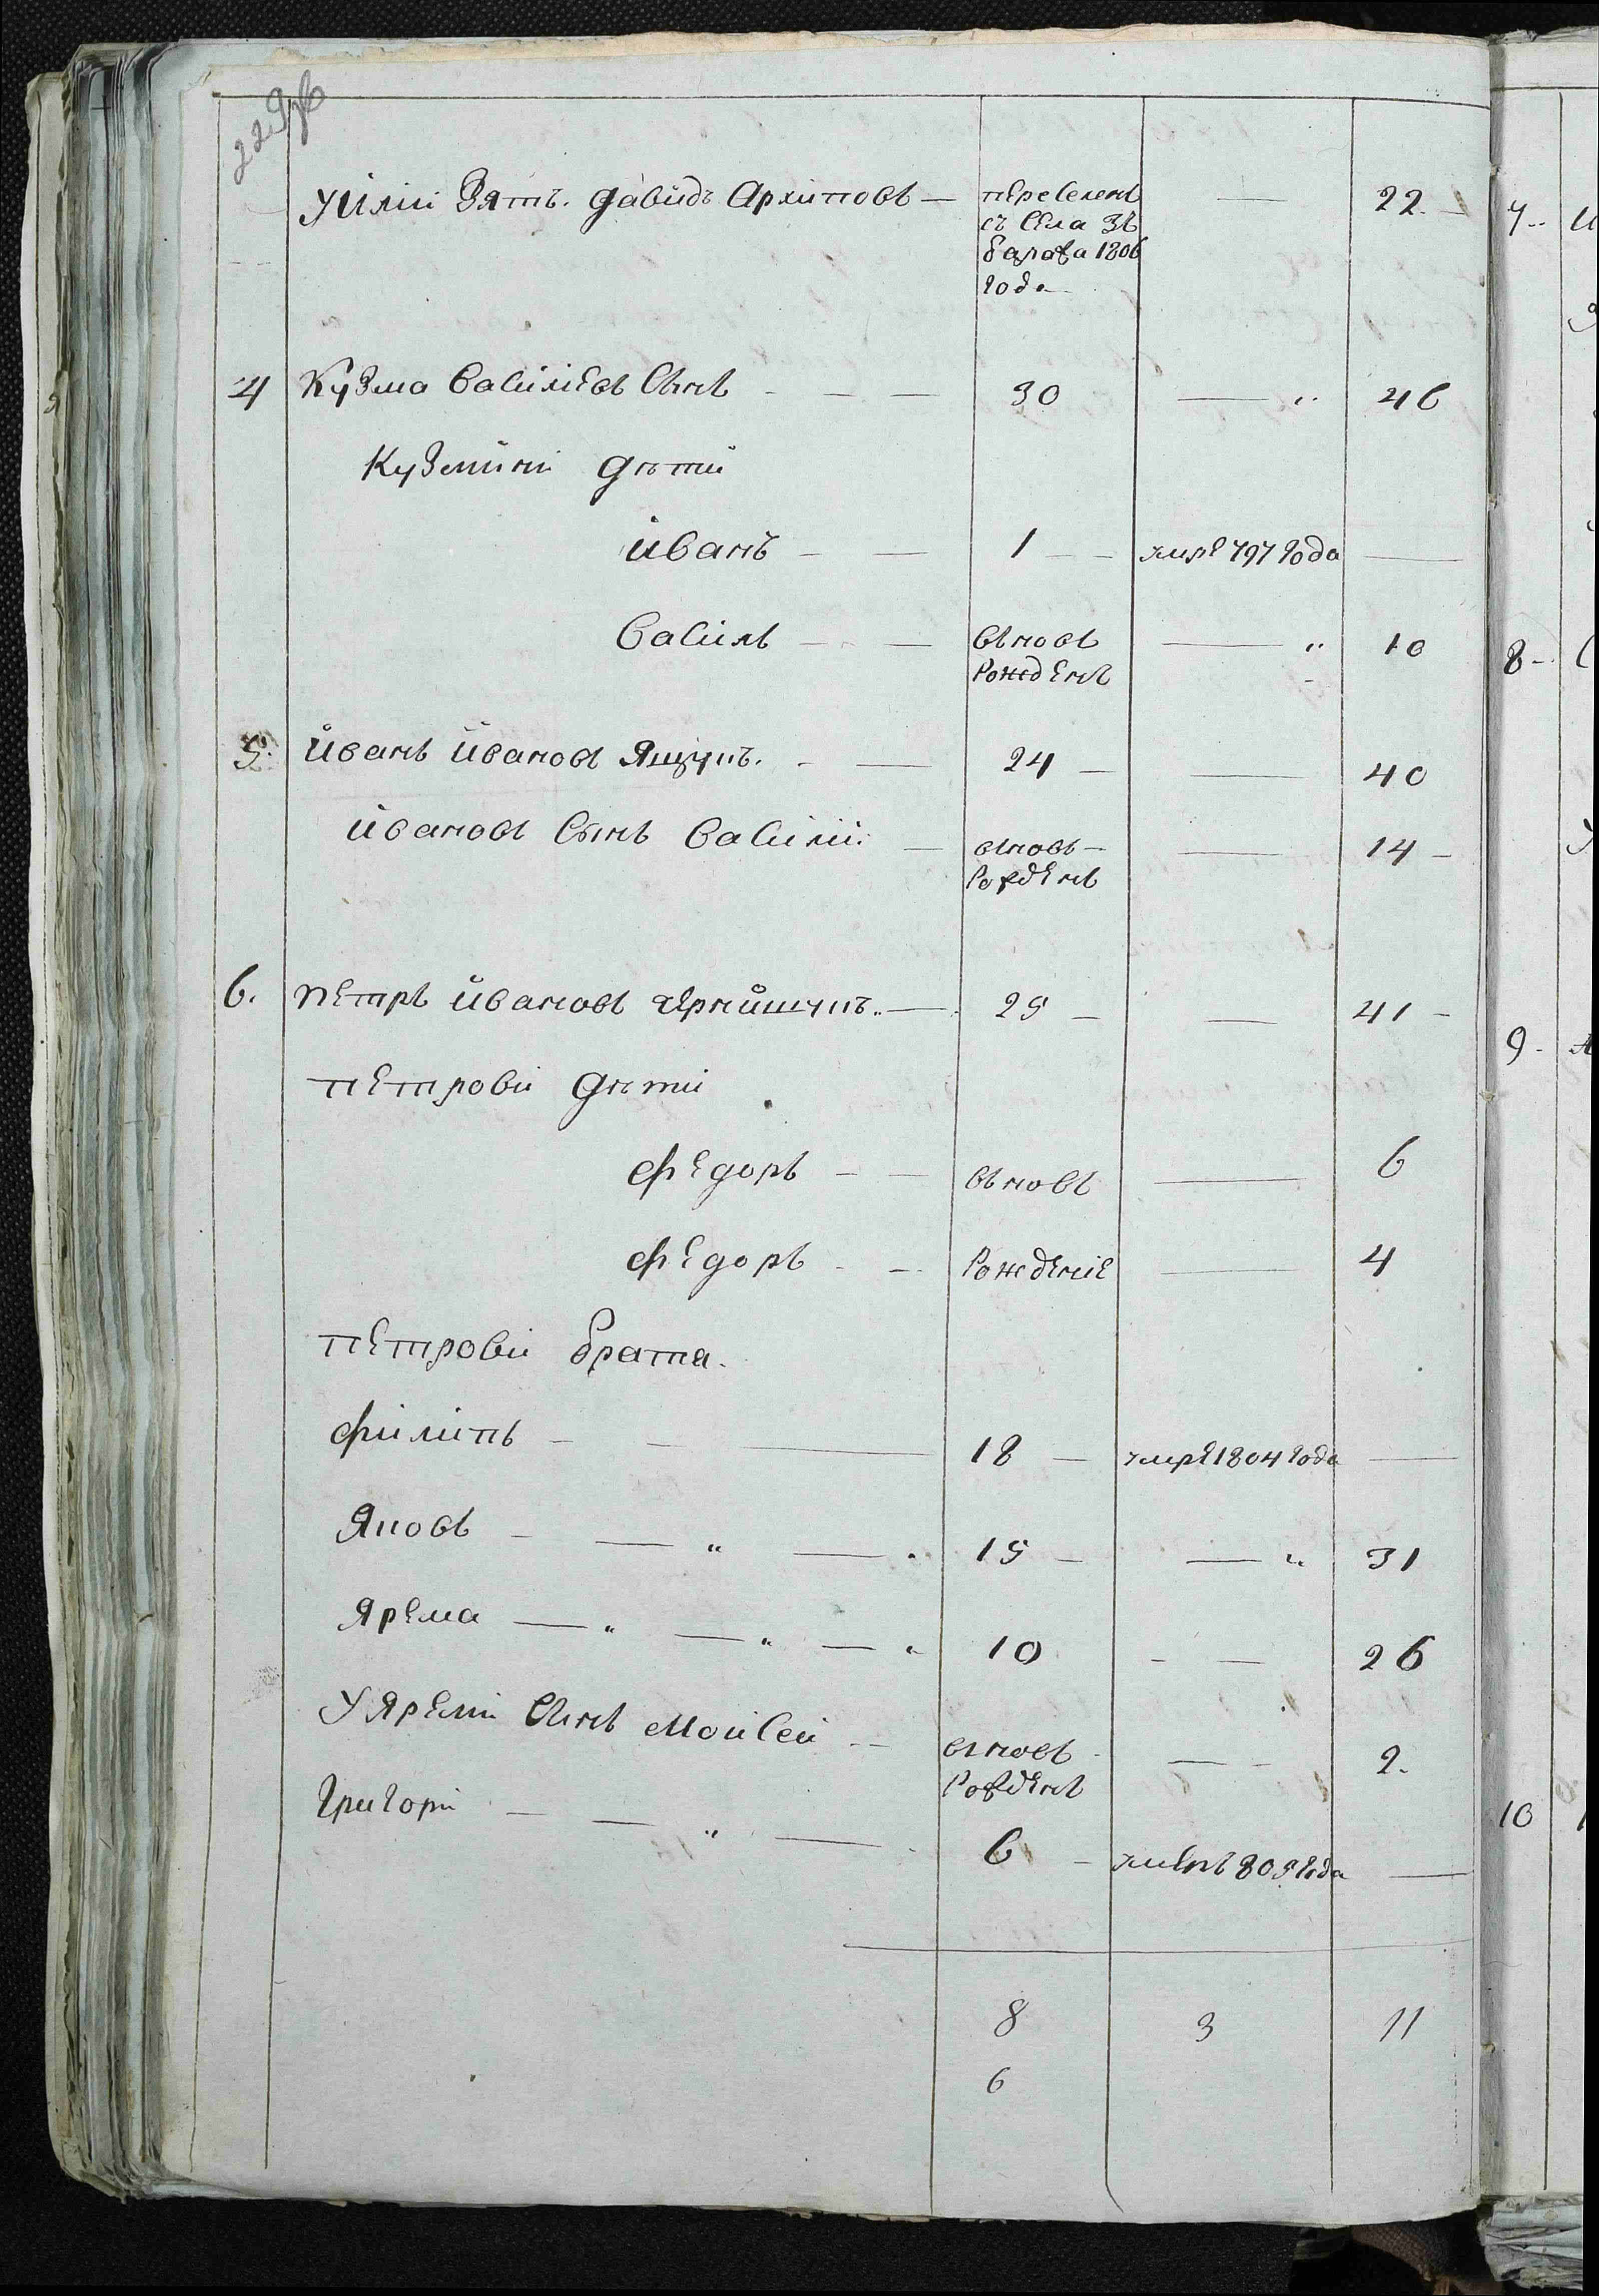 229об
Уйліи Зять. Давидъ Архиповъ — переселенъ — 22. —
съ села Зъ
барава 1806
года
4 Кузма Василіевъ сынъ — — — 30 — „ 46
Кузмини дѣти
иванъ — — 1 — — умре 797 года —
Василь — — — вьновь — „ 10
рожденъ
5. иванъ ивановъ Ящукъ. — — 24 — — 40
ивановъ сынъ Василіи: — вновь — — 14 —
рожденъ
6. петръ ивановъ чернишукъ. — 25 — — 41 —
петрови дѣти
федоръ — — вьновь — 6
федоръ — — рожденіе — 4
петрови брата.
филипъ — — — 18 — умре 1804 года —
Яковъ — — „ — . 15 — — „ 31
Ярема — „ — „ — „ 10 — — 26
У Яреми сынъ Моисеи — вновь — — 2.
рожденъ
григори — — „ — 6 — умеръ 805 года —
8 3 11
6
7..
8..
9.
10